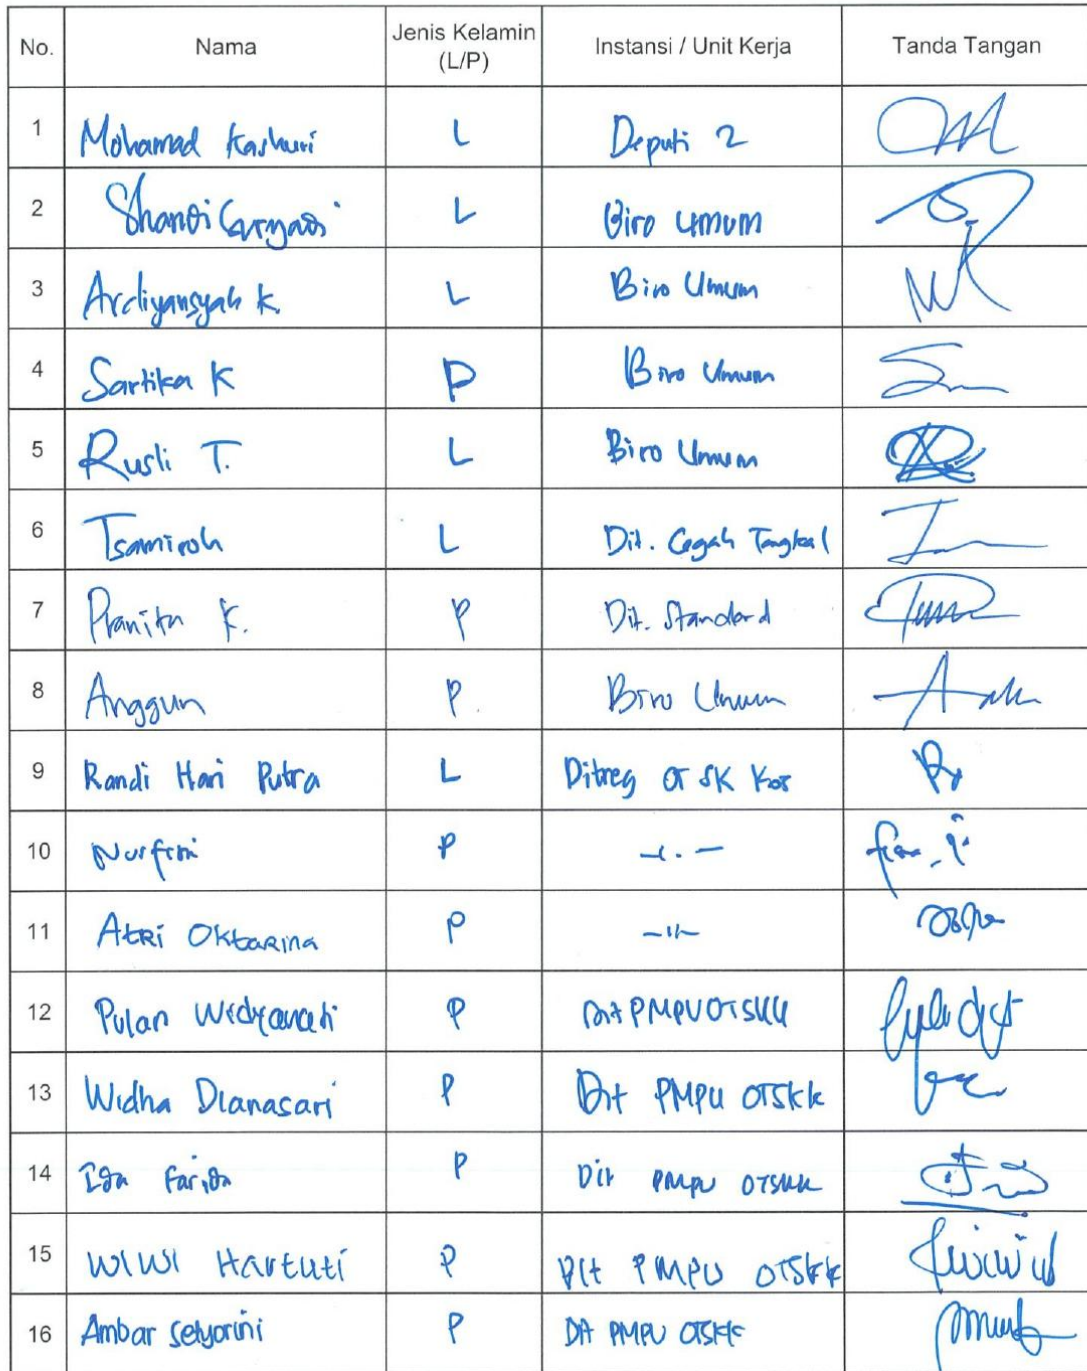 No. Nama Jenis Kelamin (L/P) Instansi / Unit Kerja Tanda Tangan
1 Mohamad Kashuri L Deputi 2
2 Shandi Suryadi L Biro Umum
3 Ardiyansyah K. L Biro Umum
4 Sartika K P Biro Umum
5 Rusli T. L Biro Umum
6 Tsamiroh L Dit. Cegah Tangkal
7 Pranita K. P Dit. Standard
8 Anggun P. Biro Umum
9 Randi Hari Putra L Ditreg OT SK Kos
10 Nurfitri P
11 Atri Oktarina P -11-
12 Pulan Widyawati P Dit PMPU OTSKK
13 Widha Dianasari P Dit PMPU OTSKK
14 Ida Farida P Dit PMPU OTSKK
15 Wiwi Hartuti P Dit PMPU OTSKK
16 Ambar Setyorini P Dit PMPU OTSKK